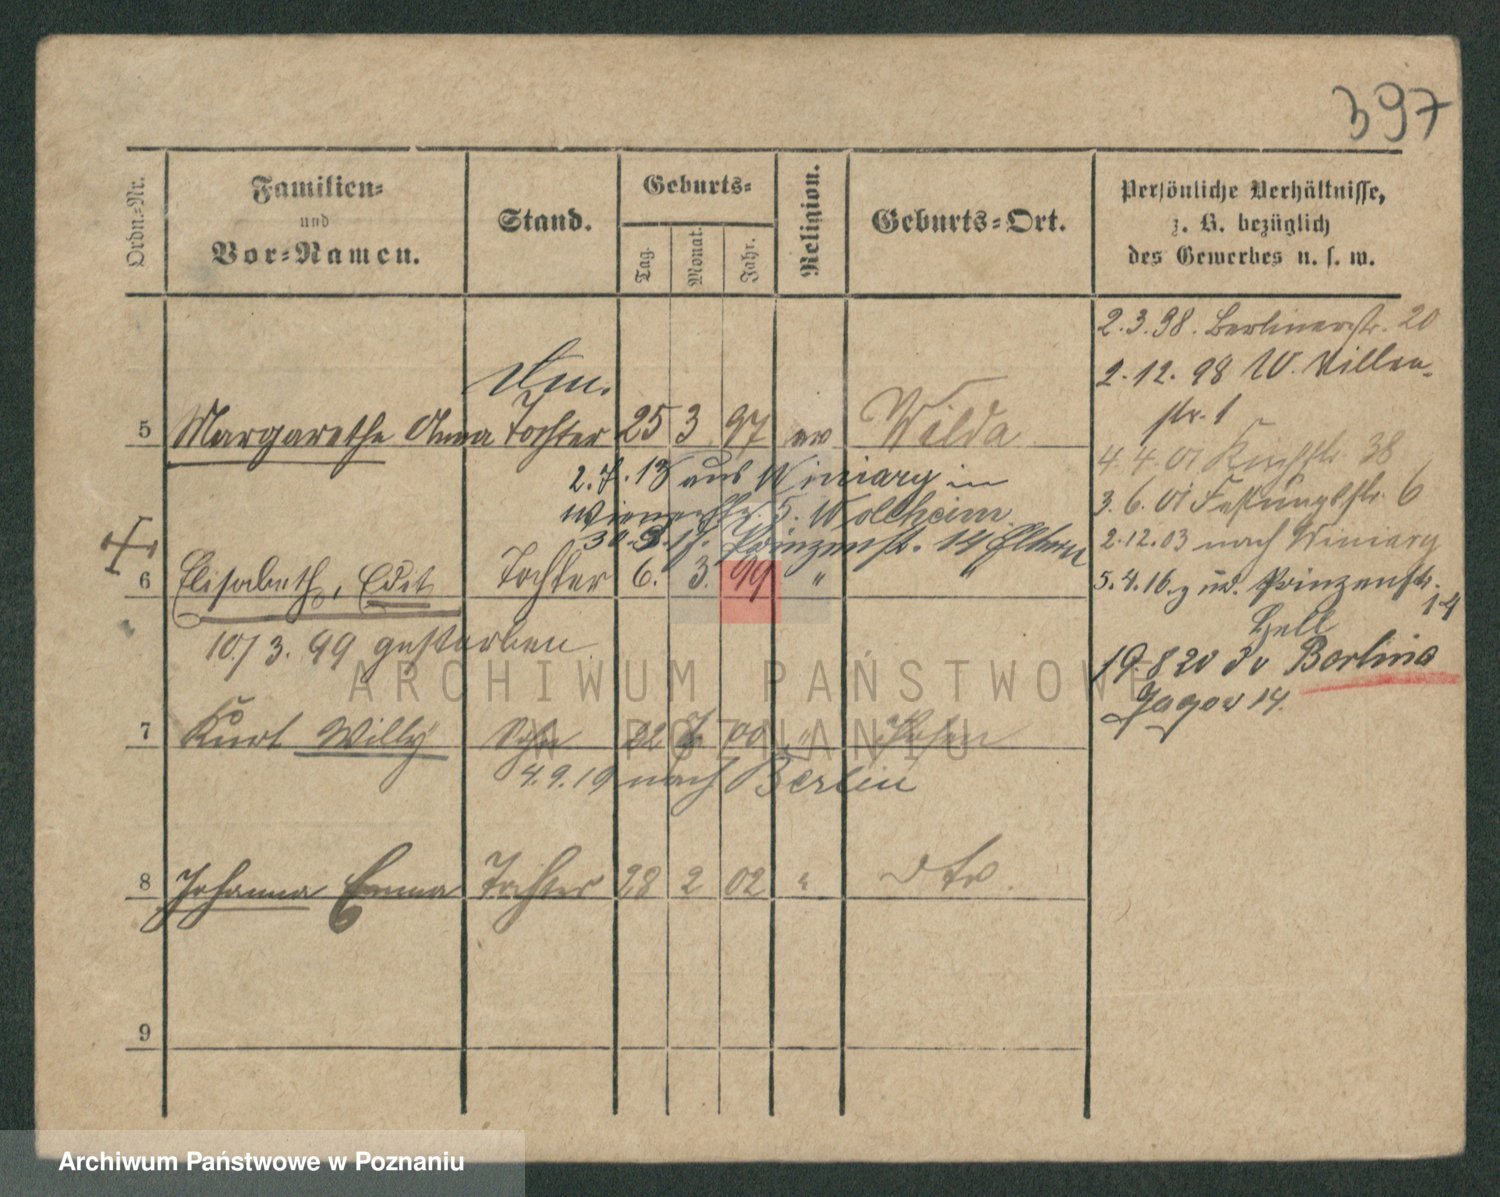 397
Ordn.-Nr.
Familien-
und
Vor-Namen.
Stand.
Geburts-
Tag.
Monat.
Jahr.
Religion.
Geburts-Ort.
Persönliche Verhältnisse,
z. B. bezüglich
des Gewerbes u. s. w.
2.3.98. Berlinerstr. 20
2.12.98 W. Villen-
str. 1
5 Margarethe Anna Tochter 25 3 97 ev Wilda
4.4.01 38
2.7.13 aus Winiary in
Wienerstr. 5.
3.6.01 Festungsstr. 6
Prinzenst. 14 Eltern
2.12.03 nach Winiary
6 Elisabeth, Edit Tochter 6. 3. 99 " "
5.4.16. Prinzenstr.
14
10./3. 99 gestorben
19.8 20 Berlina
Jagow 14.
7 Kurt Willy Sohn 22 00 " Posen
4.9.19 nach Berlin
8 Johanna Emma Tochter 28 2 02 " dto.
9
ARCHIWUM PAŃSTWOWE
W POZNANIU
Archiwum Państwowe w Poznaniu